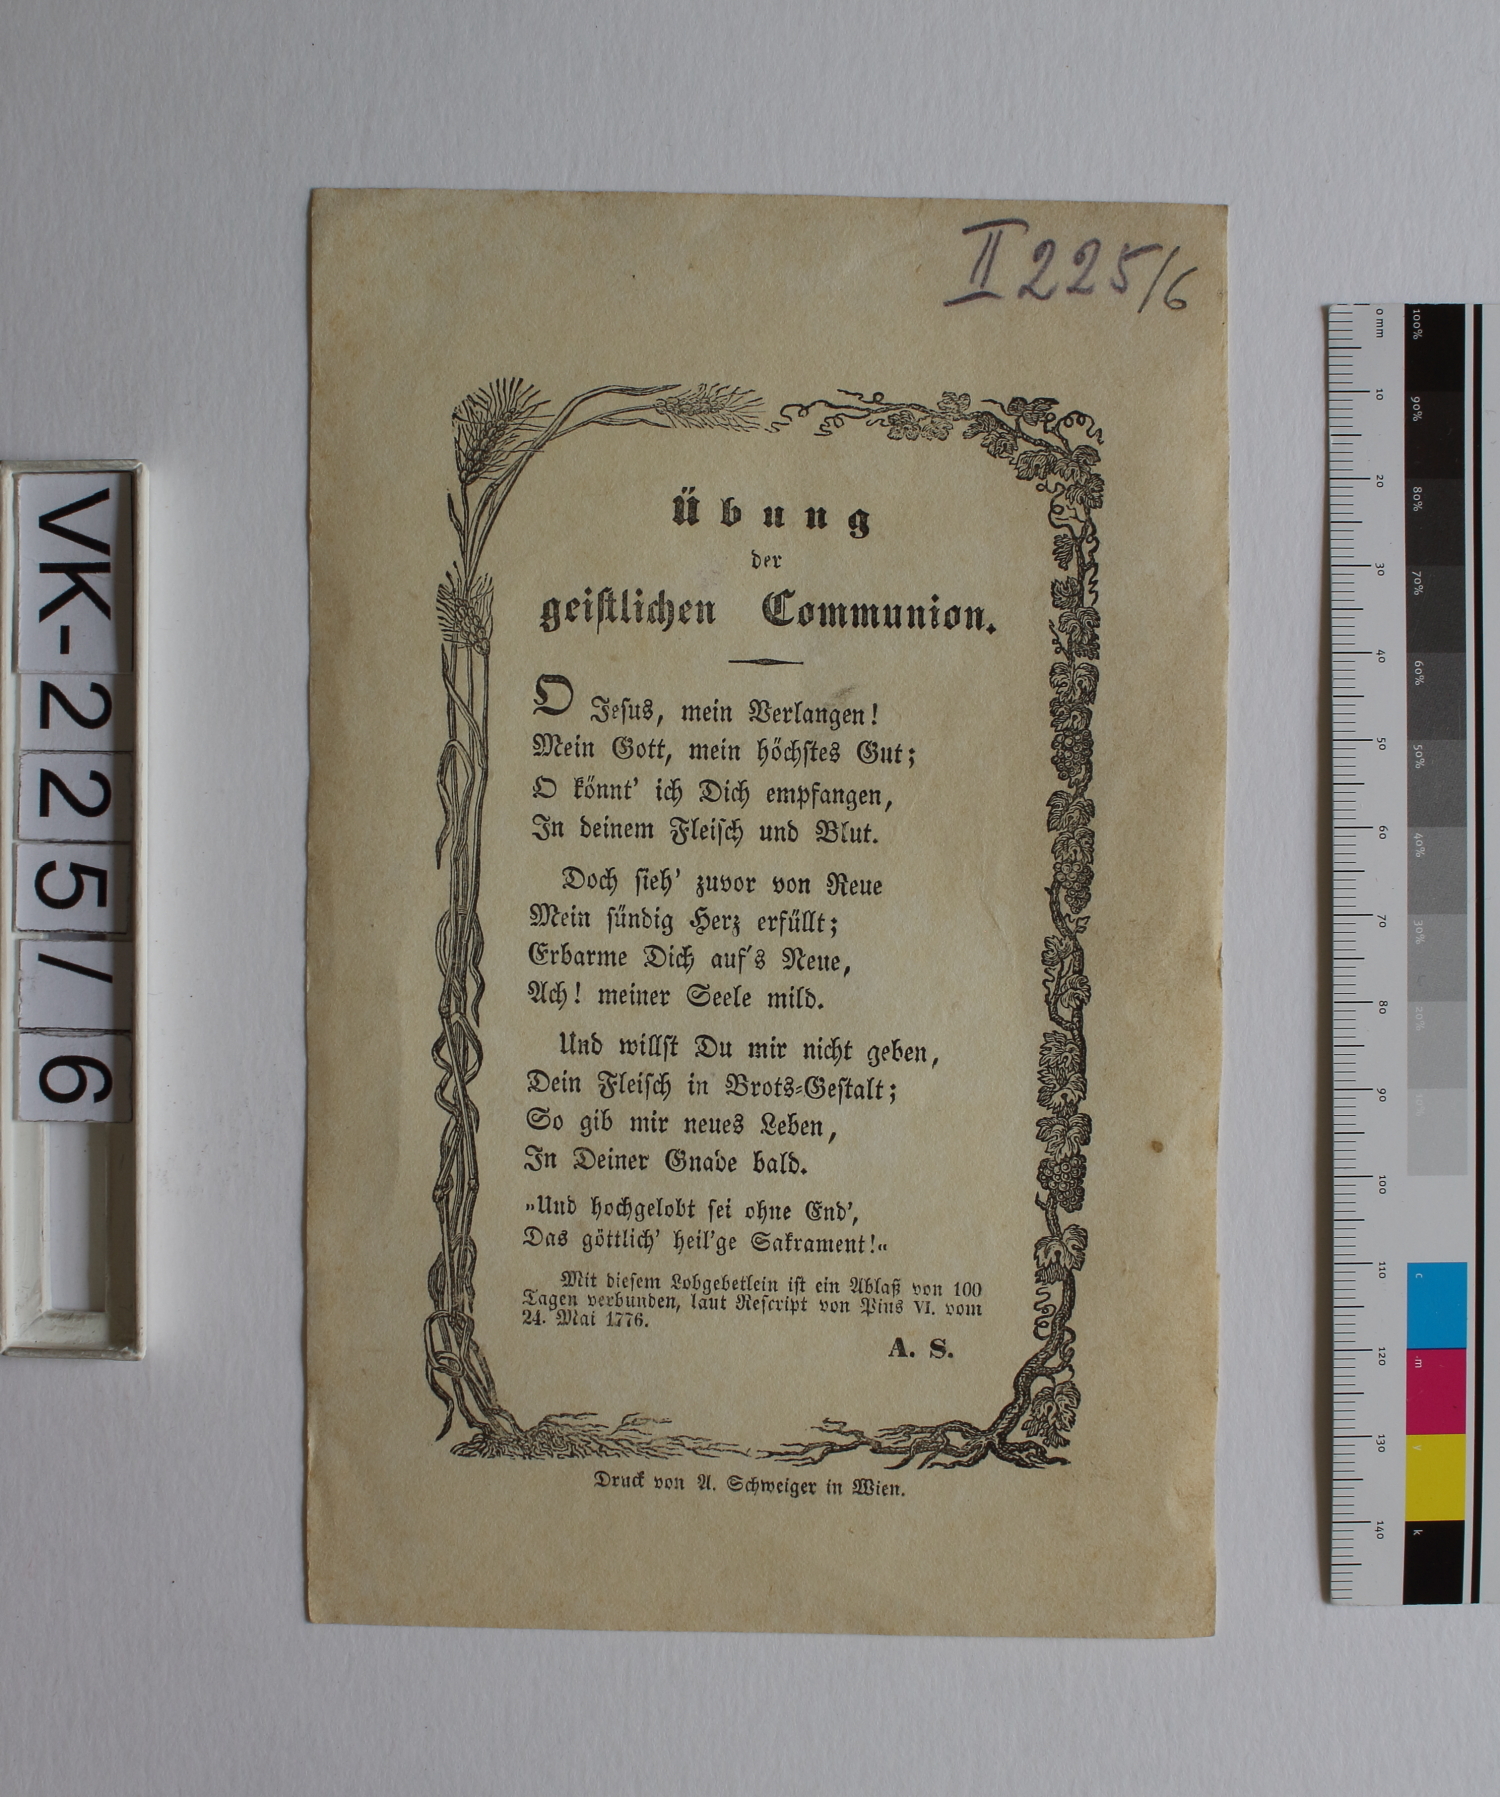 II 225/6
Übung
der
geistlichen Communion.
O Jesus, mein Verlangen!
Mein Gott, mein höchstes Gut;
O könnt' ich Dich empfangen,
In deinem Fleisch und Blut.
Doch sieh' zuvor von Reue
Mein sündig Herz erfüllt;
Erbarme Dich auf's Neue,
Ach! meiner Seele mild.
Und willst Du mir nicht geben,
Dein Fleisch in Brots-Gestalt;
So gib mir neues Leben,
In Deiner Gnade bald.
„Und hochgelobt sei ohne End',
Das göttlich' heil'ge Sakrament!“
Mit diesem Lobgebetlein ist ein Ablaß von 100
Tagen verbunden, laut Rescript von Pius VI. vom
24. Mai 1776.
A. S.
Druck von A. Schweiger in Wien.
VK-225/6
0 mm
10
20
30
40
50
60
70
80
90
100
110
120
130
140
100%
90%
80%
70%
60%
50%
40%
30%
20%
10%
c
m
y
k